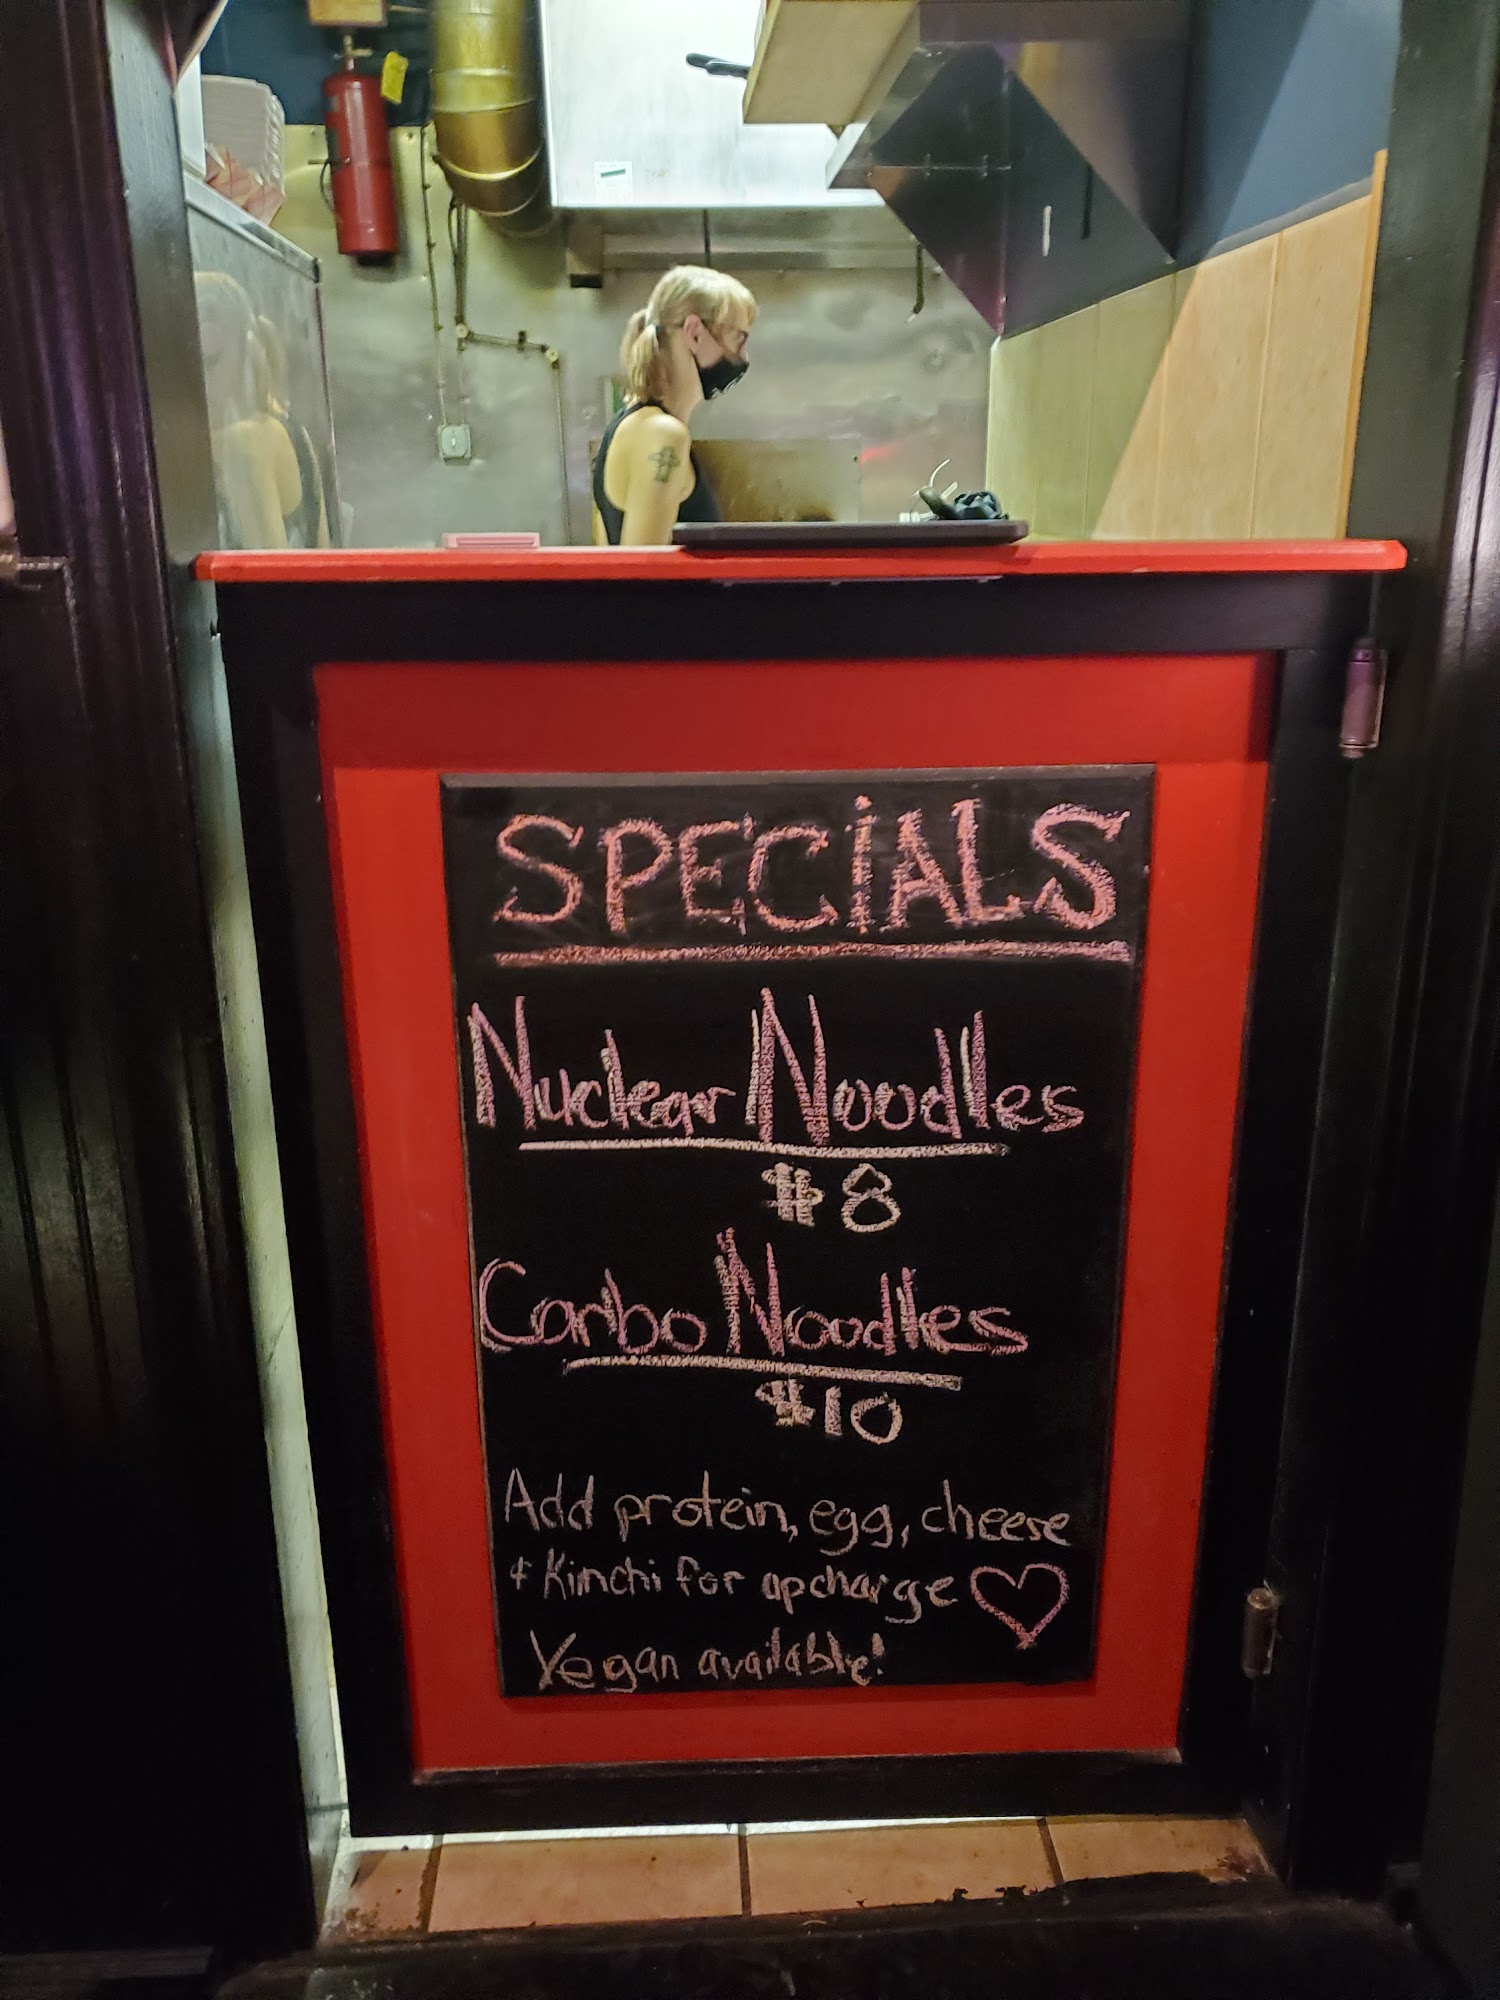 SPECiALS
Nuclear Noodles
$8
Carbo Noodles
$10
Add protein, egg, cheese
& Kimchi for upcharge
Vegan available!